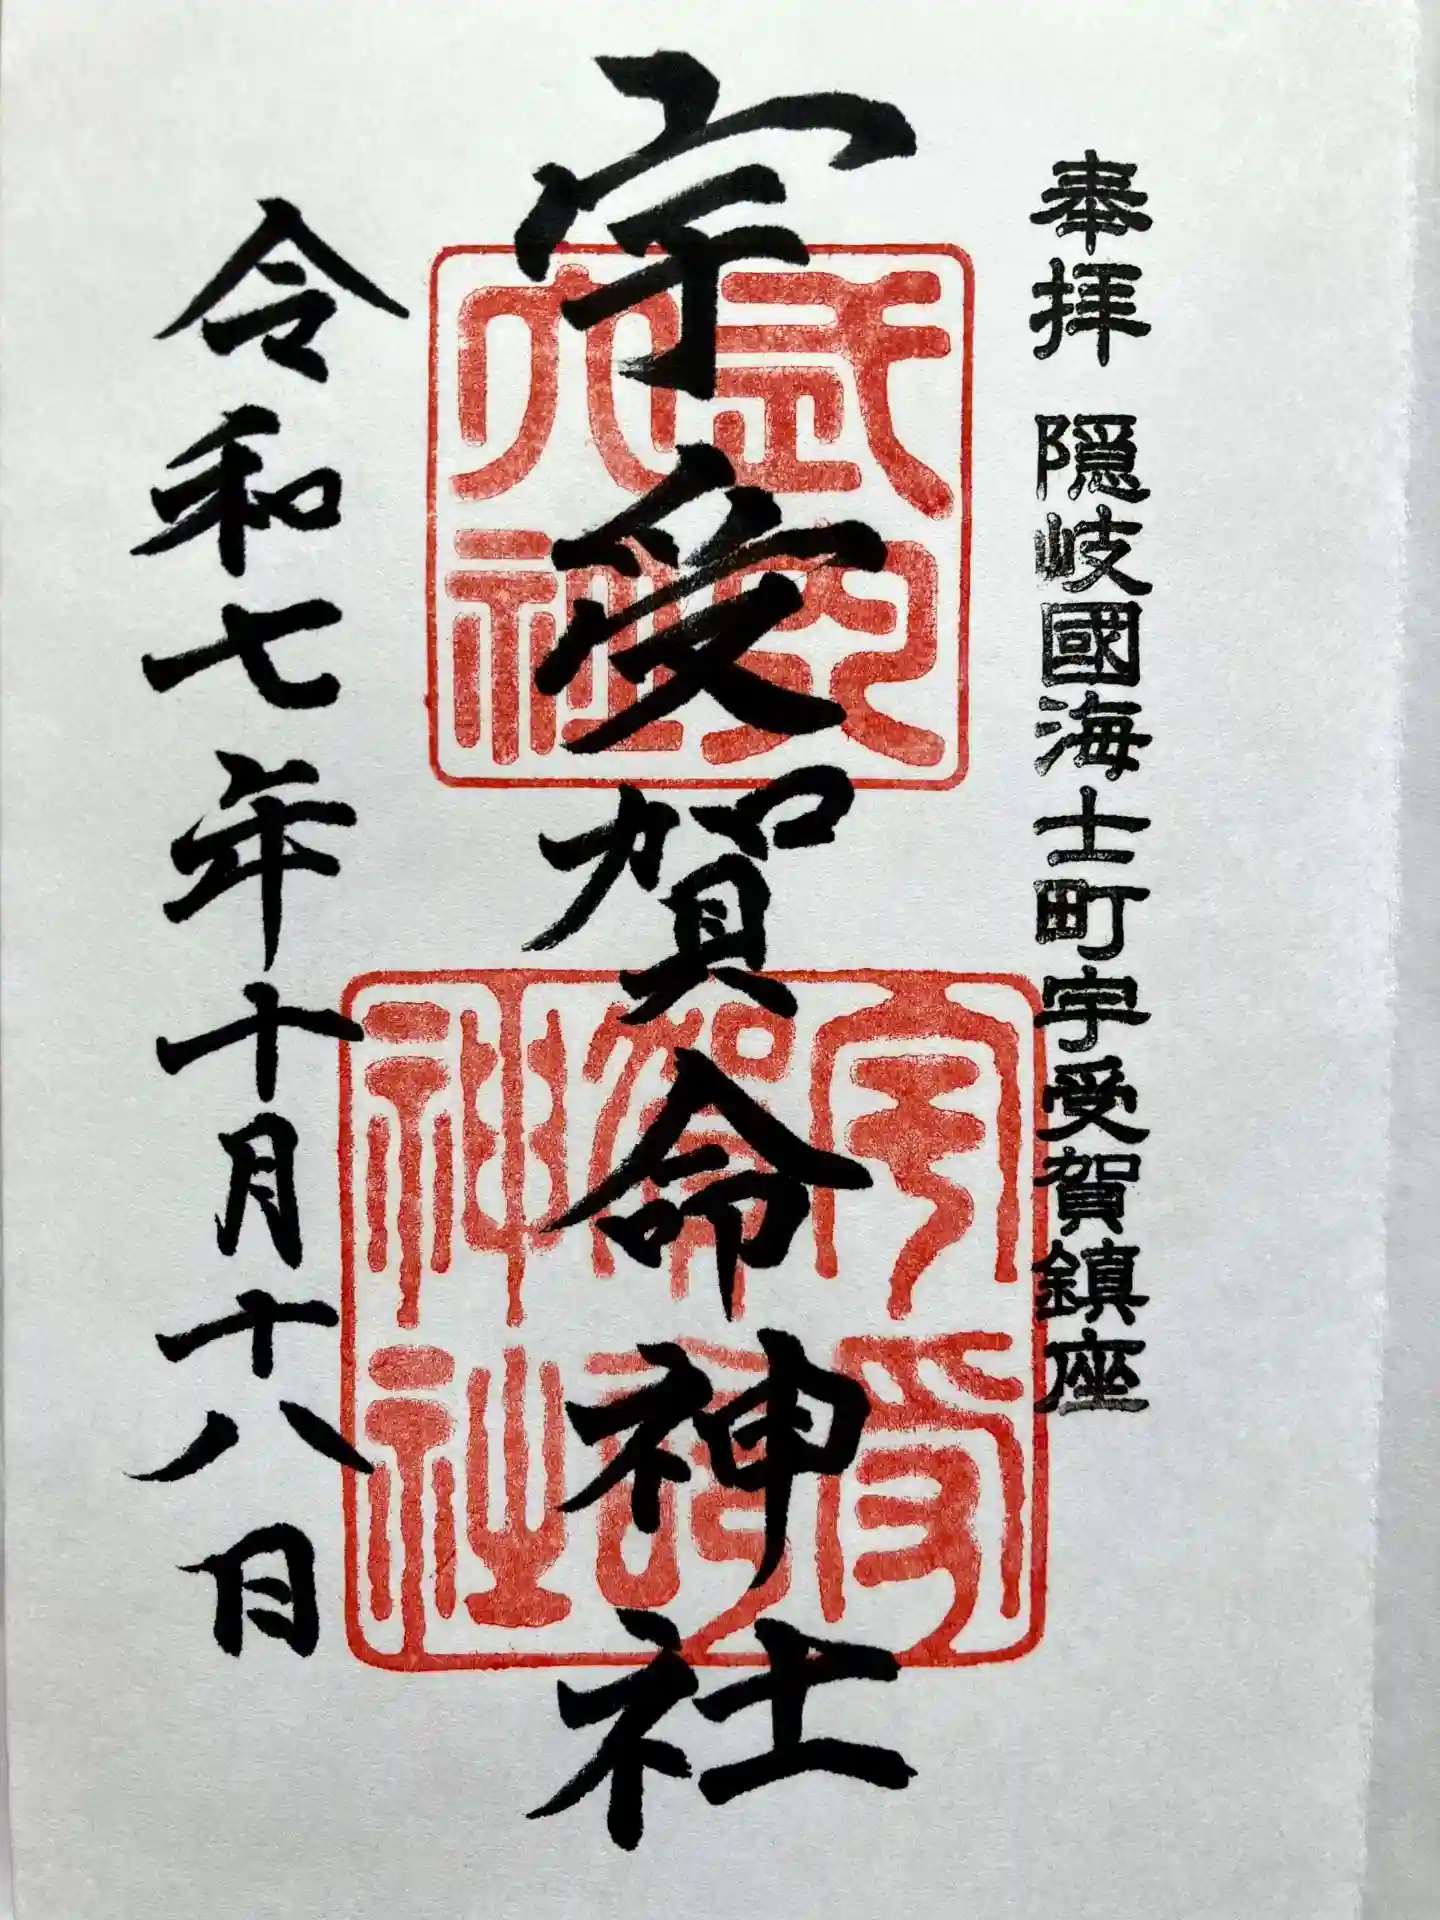 奉拝 隠岐國海士町宇受賀鎮座
式内
大社
宇受賀命神社
宇受
賀命
神社
令和七年十月十八日